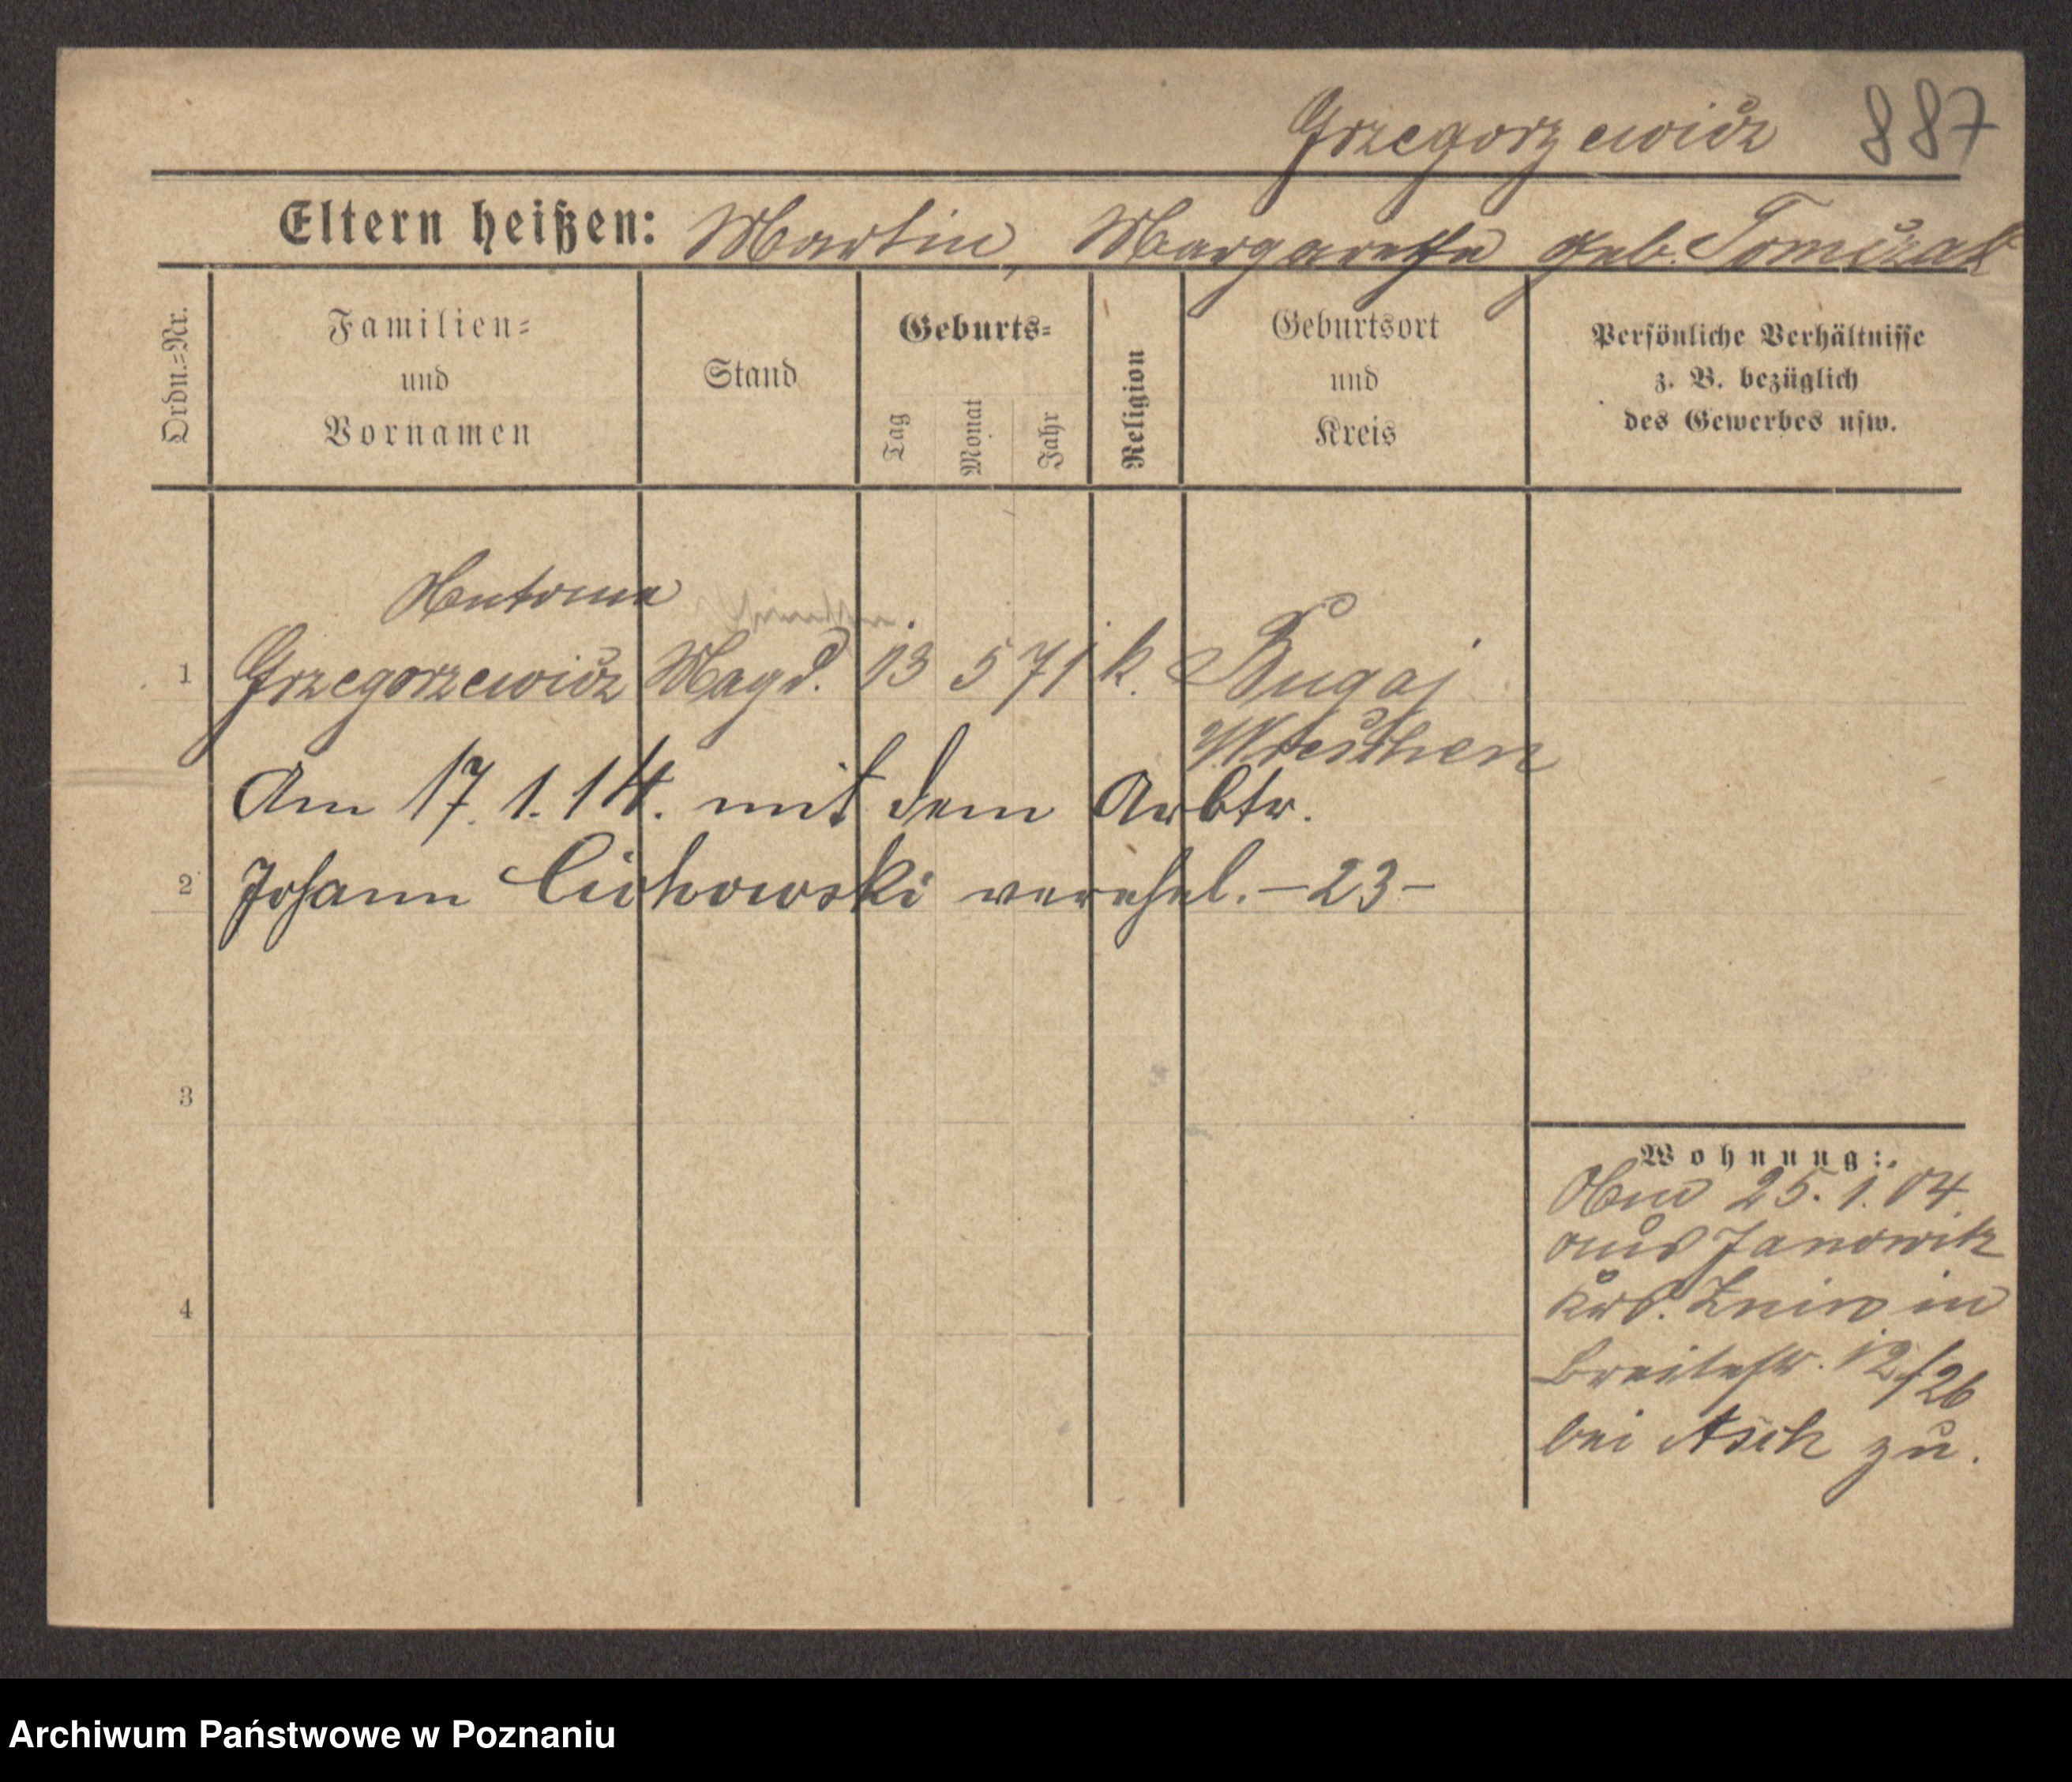 Grzegorzewicz 887
Eltern heißen: Martin, Margaretha geb. Tomczak
Ordn.=Nr.
Familien=
und
Vornamen
Stand
Geburts=
Tag
Monat
Jahr
Religion
Geburtsort
und
Kreis
Persönliche Verhältnisse
z. B. bezüglich
des Gewerbes usw.
Antonina
1 Grzegorzewicz Magd. 13 5 71 k. Bugaj
Wreschen
Am 17. 1. 14. mit dem Arbtr.
2 Johann Cichowski verehel. – 23 –
3
4
Wohnung:
Am 25. 1. 04.
aus Janowitz
Krs. Znin in
Breitestr. 12/26
bei Asch zu.
Archiwum Państwowe w Poznaniu